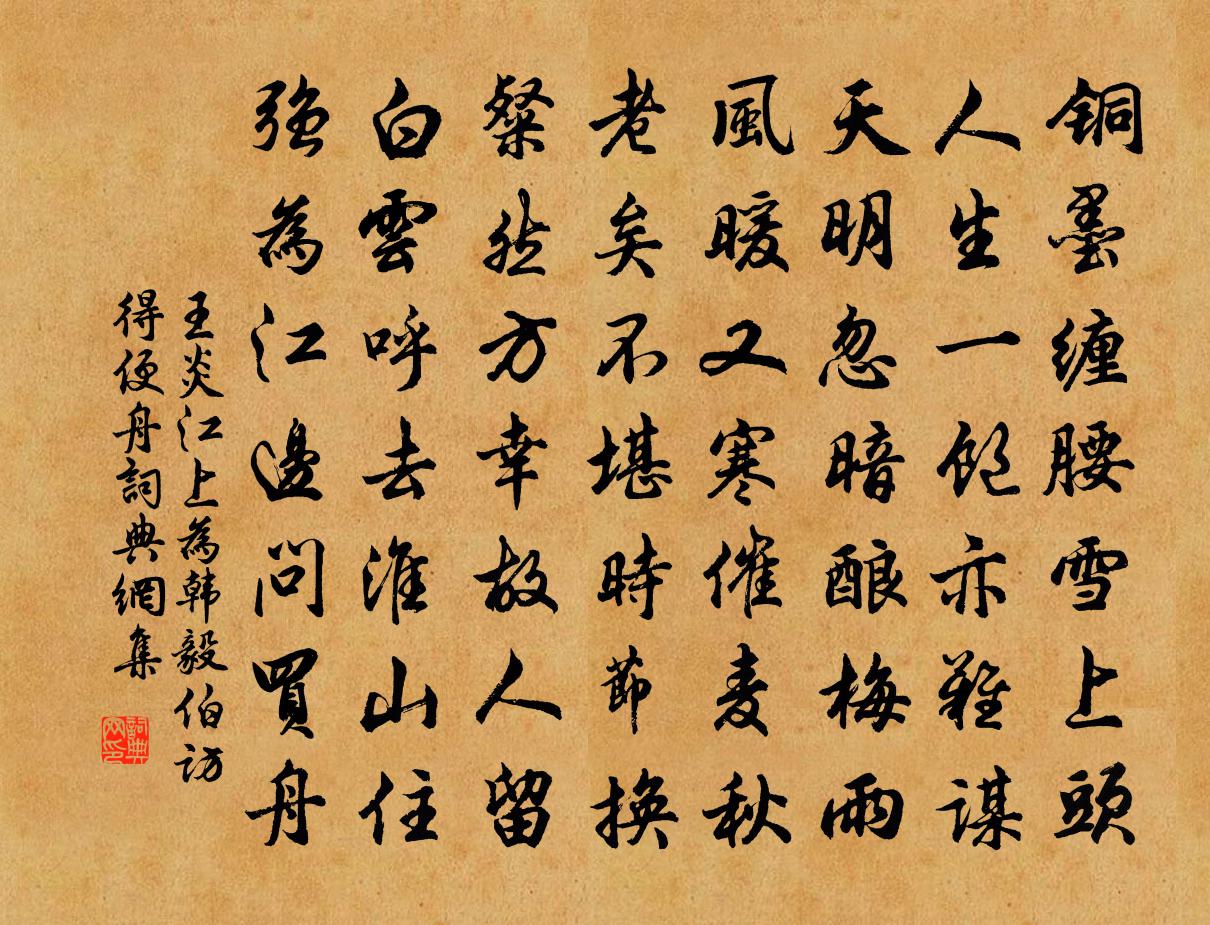 铜墨缠腰雪上頭
人生一饱亦難謀
天明忽暗酿梅雨
風暖又寒催麦秋
老矣不堪時節換
粲然方幸故人留
白雲呼去淮山住
強為江邊問買舟
王炎江上為韩毅伯访
得便舟詞典網集
詞典网印